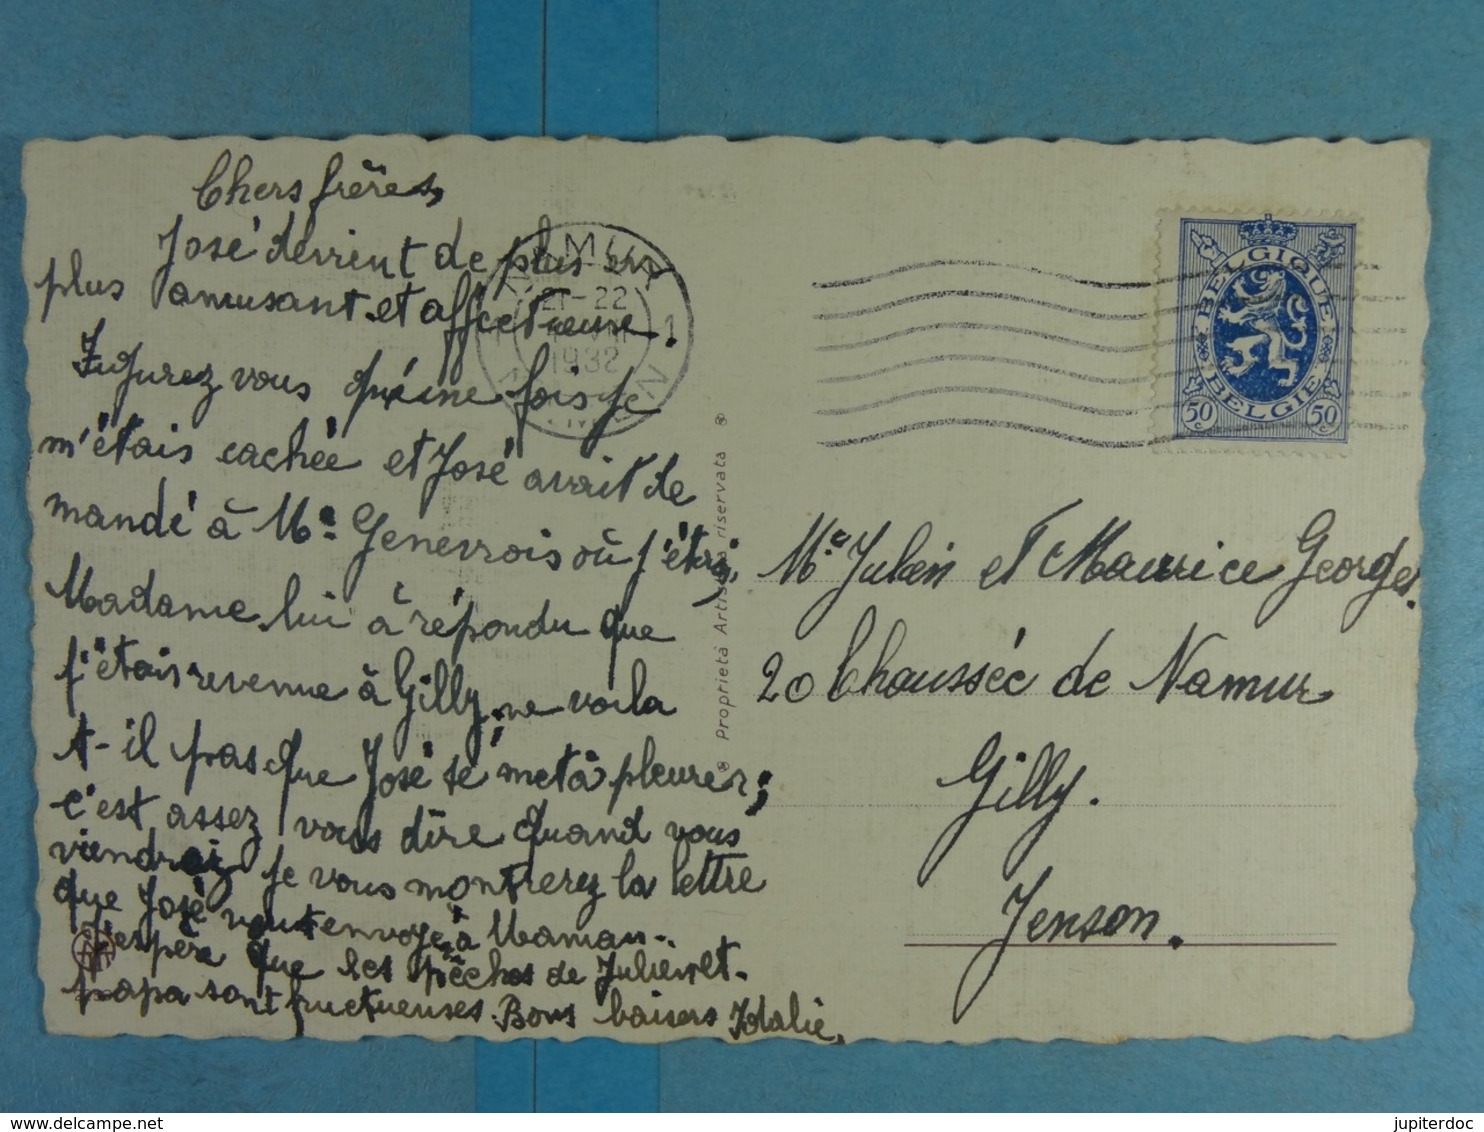 Chers frères,
José devient de plus en
plus amusant et affectueuse.
Figurez vous qu'une fois je
m'étais cachée et José avait de
mandé à Me Genevrois où j'étais,
Madame lui à répondu que
j'étais revenue à Gilly, ne voila
t-il pas que José se met à pleurer;
c'est assez vous dire quand vous
viendrez je vous montrerez la lettre
que José veut envoyé à Maman.
J'espère que les pêches de Julien et
papa sont fructueuses. Bons baisers Idalie,
NAMUR
21-22
VIII
1932
1
NAMEN
Proprietà Artistica riservata
BELGIQUE
BELGIE
50 c
50 c
Mrs Julien et Maurice Georges.
20 Chaussée de Namur
Gilly.
Jenson.
jupiterdoc